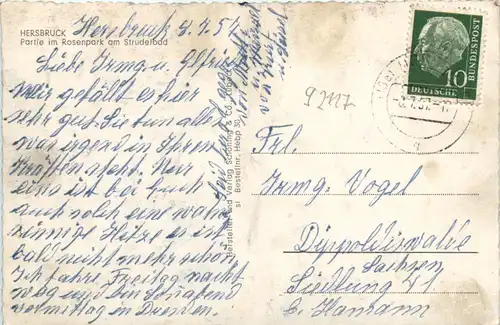 HERSBRUCK
Partie im Rosenpark am Strudelbad
Hersbruck 5.7.57
Liebe Irmg. u. Elfriede
Mir gefällt es hier
sehr gut. Sie tun alles
was irgend in Ihren
Kräften steht. Nur
eins ist bei Euch
auch solch eine wahn-
sinnige Hitze es ist
bald nicht mehr schön
Ich fahre Freitag nacht
weg und bin Sonabend
vormittag in Dresden.
Hersteller und Verlag Schöning & Co.
Bestellnr. Hebp
92117
10
DEUTSCHE
BUNDESPOST
Frl.
Irmg. Vogel
Dippoldiswalde
Sachsen
Siedlung
b. Hamann